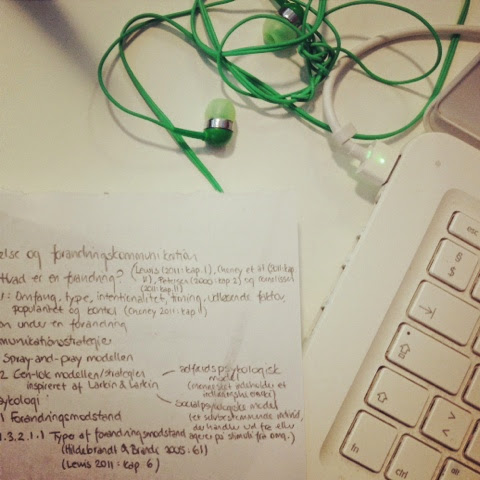 else og forandringskommunikation
Hvad er en forandring? (Lewis (2011: kap. 1), Cheney et al (2011: kap
8), Petersen (2000: kap 2) og Cornelissen
(2011: kap. 11)
1: Omfang, type, intentionalitet, timing, udløsende faktor,
popularitet og kontrol (Cheney 2011: kap.
on under en forandring
munikationsstrategier
Spray-and-pray modellen
2 Cen-lok modellen/strategien
inspireret af Larkin & Larkin
adfærdspsykologisk
model
(mennesket indeholder et
socialpsykologiske model
(et selvbestemmende individ,
der handler ud fra eller
agerer på stimuli fra omg.)
sykologi:
1 Forandringsmodstand
1.3.2.1.1 Typer af forandringsmodstand
(Hildebrandt & Brandi 2005: 61)
(Lewis 2011: kap. 6)
esc
§
$
fn
ctrl
>
<